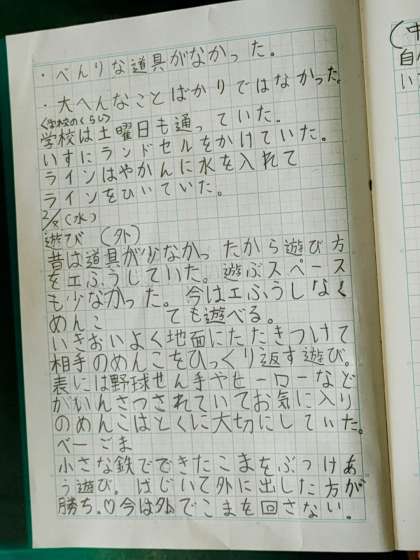 ・べんりな道具がなかった。
・大へんなことばかりではなかった。
<学校のくらし>
学校は土曜日も通っていた。
いすにランドセルをかけていた。
ラインはやかんに水を入れて
ラインをひいていた。
2/8(水)
遊び (外)
昔は道具が少なかったから遊び方
を工ふうしていた。遊ぶスペース
も少なかった。今は工ふうしなく
ても遊べる。
めんこ
いきおいよく地面にたたきつけて
相手のめんこをひっくり返す遊び。
表には野球せん手やヒーローなど
がいんさつされていてお気に入り
のめんこはとくに大切にしていた。
べーごま
小さな鉄でできたこまをぶつけあ
う遊び。はじいて外に出した方が
勝ち。♡今は外でこまを回さない。
(中
自
い